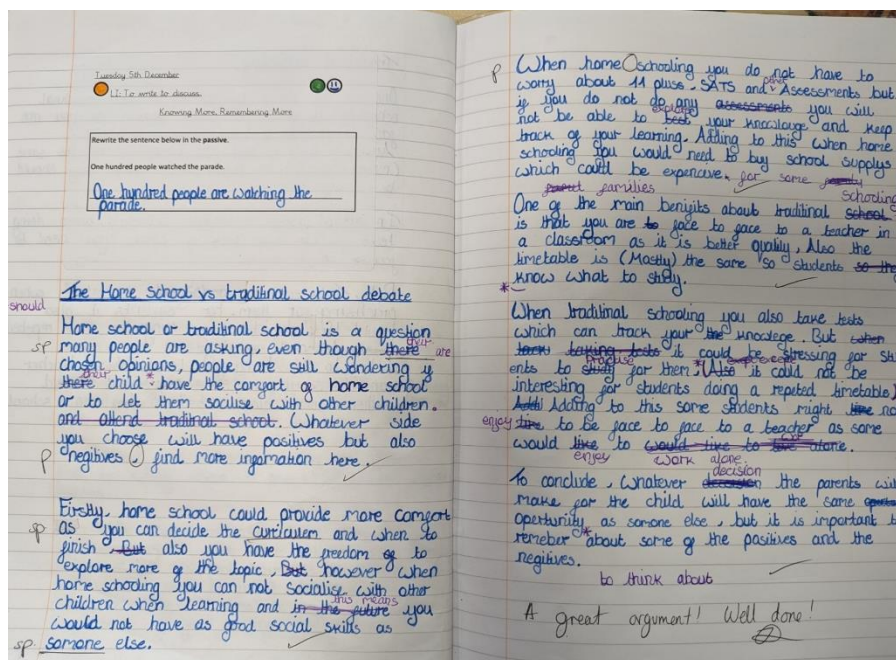 Tuesday 5th December
LI: To write to discuss.
Knowing More, Remembering More
Rewrite the sentence below in the passive.
One hundred people watched the parade.
One hundred people are watching the
parade.
The Home school vs traditinal school debate
should
Home school or traditinal school is a question
sp many people are asking, even though there their are
chosen opinions, people are still wondering if
there their child * have the comfort of home school
or to let them socilise with other children.
and attend traditinal school. Whatever side
you choose will have positives but also
p negitives, find more information here.
Firstly, home school could provide more comfort
sp as you can decide the curiculem and when to
finish, But also you have the freedom of to
explore more of the topic, But however when
home schooling you can not socialise with other
children when learning and in the future this means you
would not have as good social skills as
sp somone else.
p When home schooling you do not have to
worry about 11 pluse, SATS and other Assessments but
if you do not do any assessments you will
not be able to test explore your knowlauge and keep
track of your learning. Adding to this when home
schooling you would need to buy school supplys
which could be expencive. for some
families
schooling
One of the main benifits about traditinal school
is that you are to face to face to a teacher in
a classroom as it is better quality, Also the
timetable is (Mastly) the same so students so the
* know what to study.
When traditinal schooling you also take tests
which can track your the knowlege. But when
taking tests it could be stressing for stud
ents to study for them. * Also it could not be
interesting for students doing a repeted timetable.
Addi Adding to this some students might like no
enjoy to be face to face to a teacher as some
would like to would like to alone.
enjoy work alone.
decision
To conclude, Whatever the parents will
make for the child will have the same
opertunity as somone else, but it is important
remeber * about some of the positives and the
negitives.
to think about
A great argument! Well done!